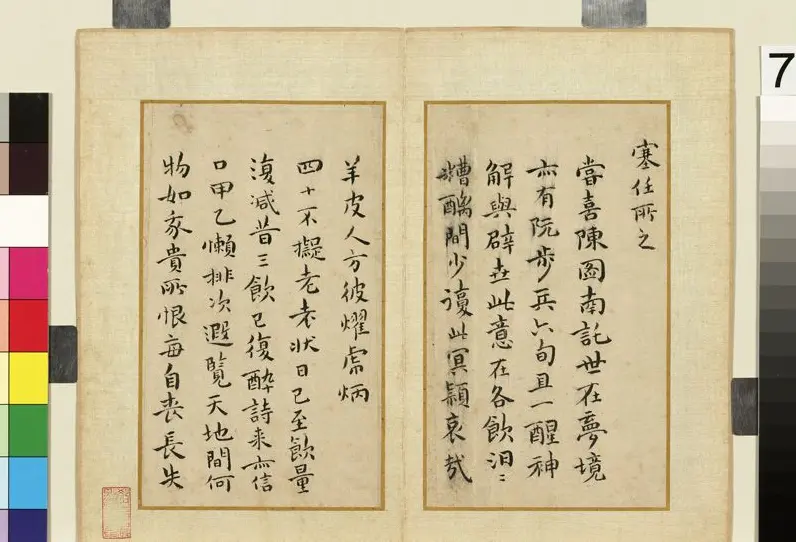 塞任所之
喜陳圖南託世在夢境
亦有阮步兵六旬且一醒神
解與辟此意在各飲汩〻
糟醨間少此冥哀哉
羊皮人方彼燿虎炳
四十不擬老老狀日已至飲量
復減昔三飲已復醉詩来亦信
口甲乙懶排次遐覽天地間何
物如貴所恨每自喪長失
7